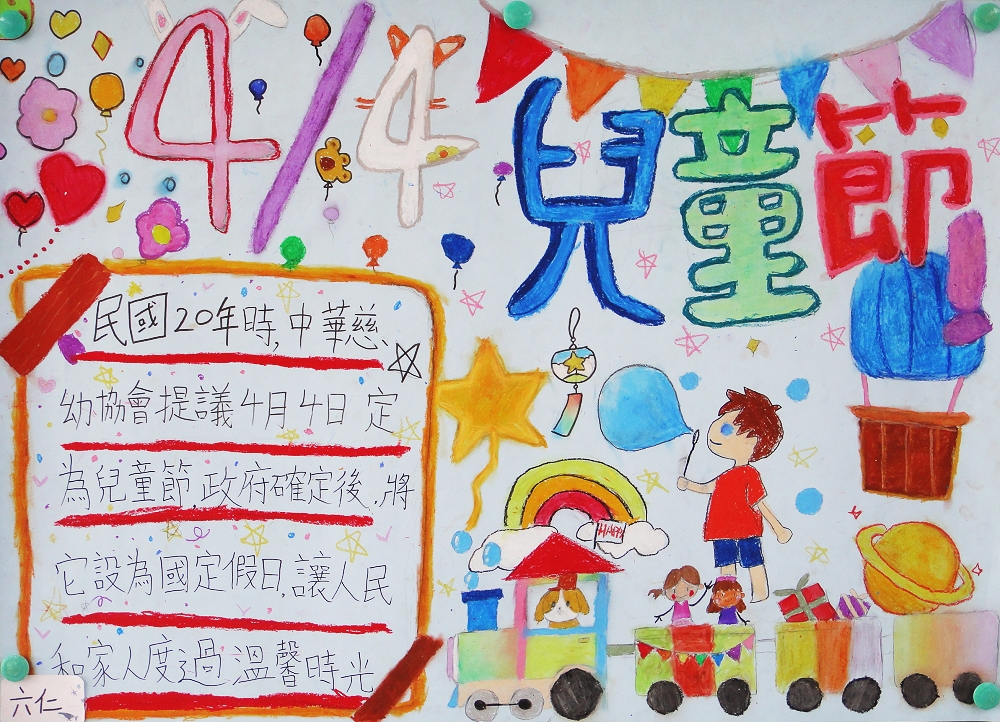 4/4
兒童節
民國20年時,中華慈
幼協會提議4月4日定
為兒童節,政府確定後,將
它設為國定假日,讓人民
和家人度過溫馨時光
HAPPY
六仁